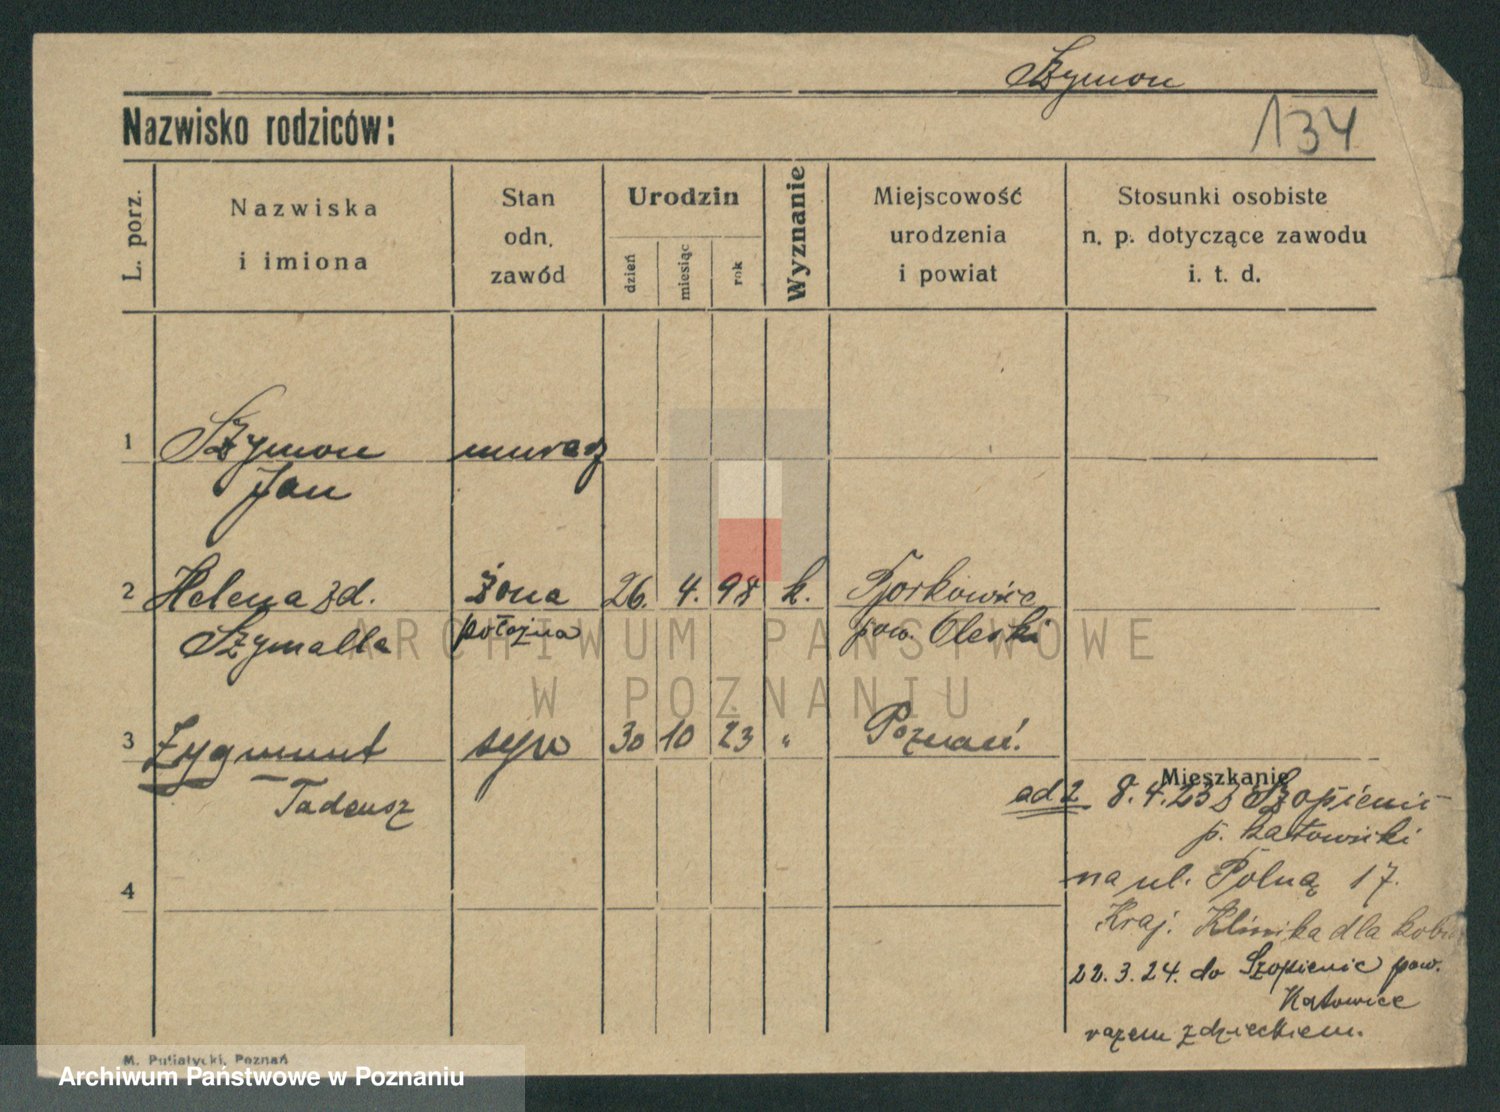 Szymon
134
Nazwisko rodziców:
L. porz.
Nazwiska
i imiona
Stan
odn.
zawód
Urodzin
dzień
miesiąc
rok
Wyznanie
Miejscowość
urodzenia
i powiat
Stosunki osobiste
n. p. dotyczące zawodu
i. t. d.
1 Szymon murarz
Jan
2 Helena zd. żona 26. 4. 98 k.
Szymalla położna pow. Oleski
ARCHIWUM PAŃSTWOWE
W POZNANIU
3 Zygmunt syn 30 10 23 " Poznań.
Tadeusz
Mieszkanie
ad 2 8.4.23 z Szopienic
p. katowicki
na ul. Polną 17.
4
Kraj. Klinika dla
22.3.24. do Szopienic pow.
Katowice
razem z dzieckiem.
M. Putiatycki, Poznań
Archiwum Państwowe w Poznaniu